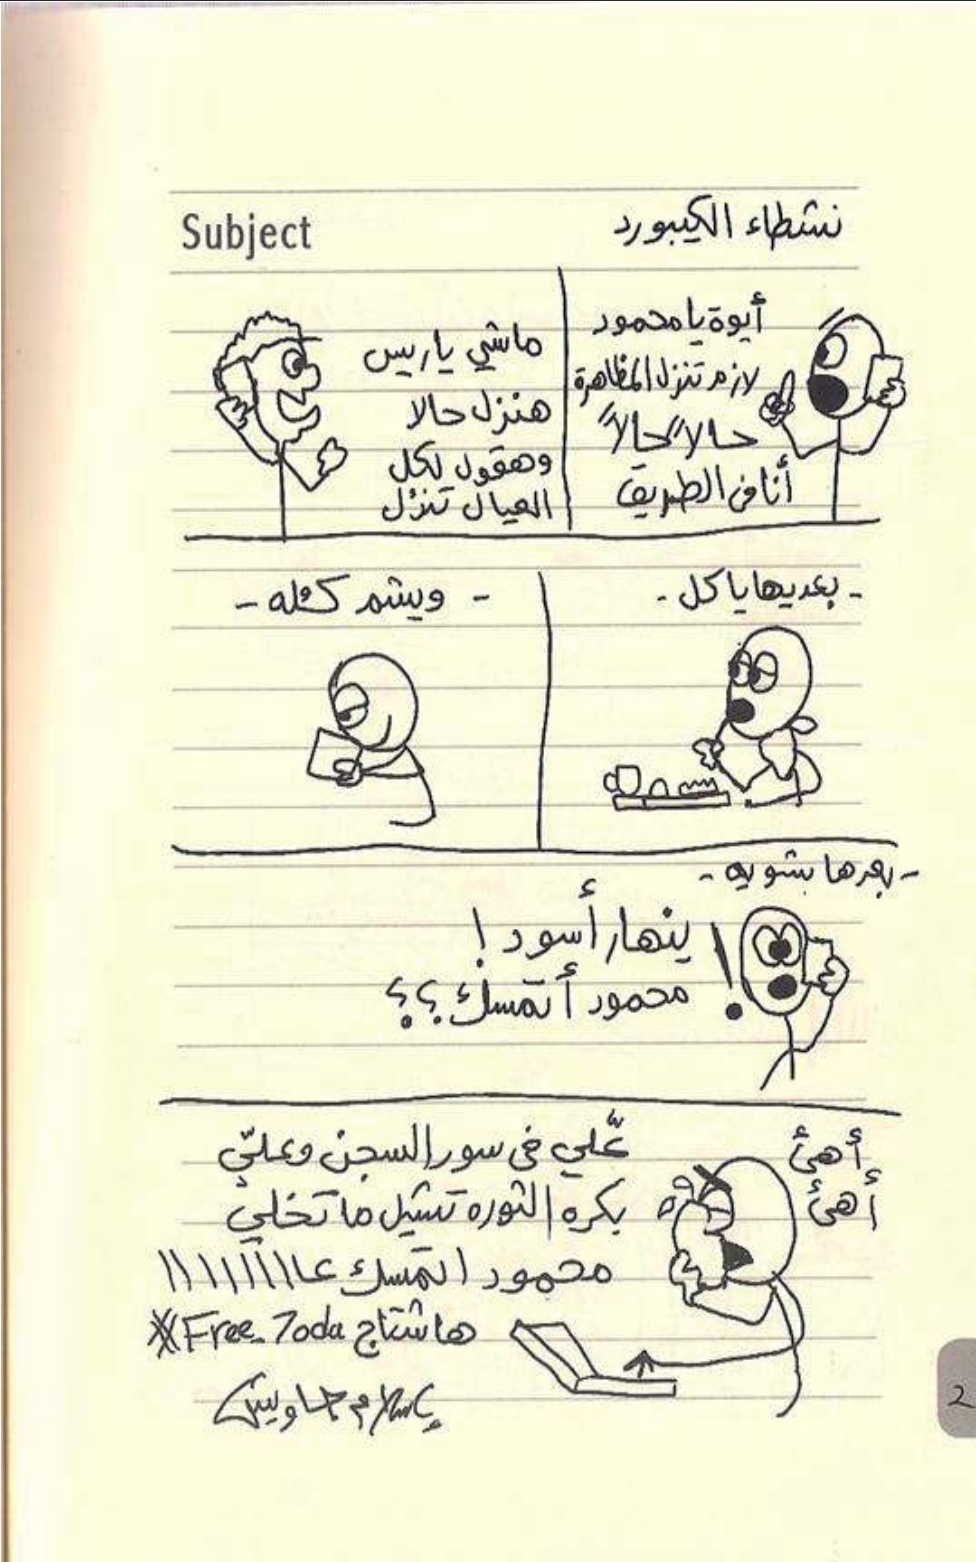 Subject
نشطاء الكيبورد
أيوة يا محمود
لازم تنزل المظاهرة
حالاً حالاً
أنا فى الطريق
ماشي يا ريس
هنزل حالا
وهقول لكل
العيال تنزل
- بعديها ياكل -
- ويشم كلله -
- بعدها بشويه -
ينهار أسود !
محمود أتمسك ؟؟
!
أهئ
أهئ
عّلي فى سور السجن وعليّ
بكره الثوره تشيل ما تخليّ
محمود اتمسك عاااااااااا
هاشتاج Free_7oda#
إسلام جاويش
2